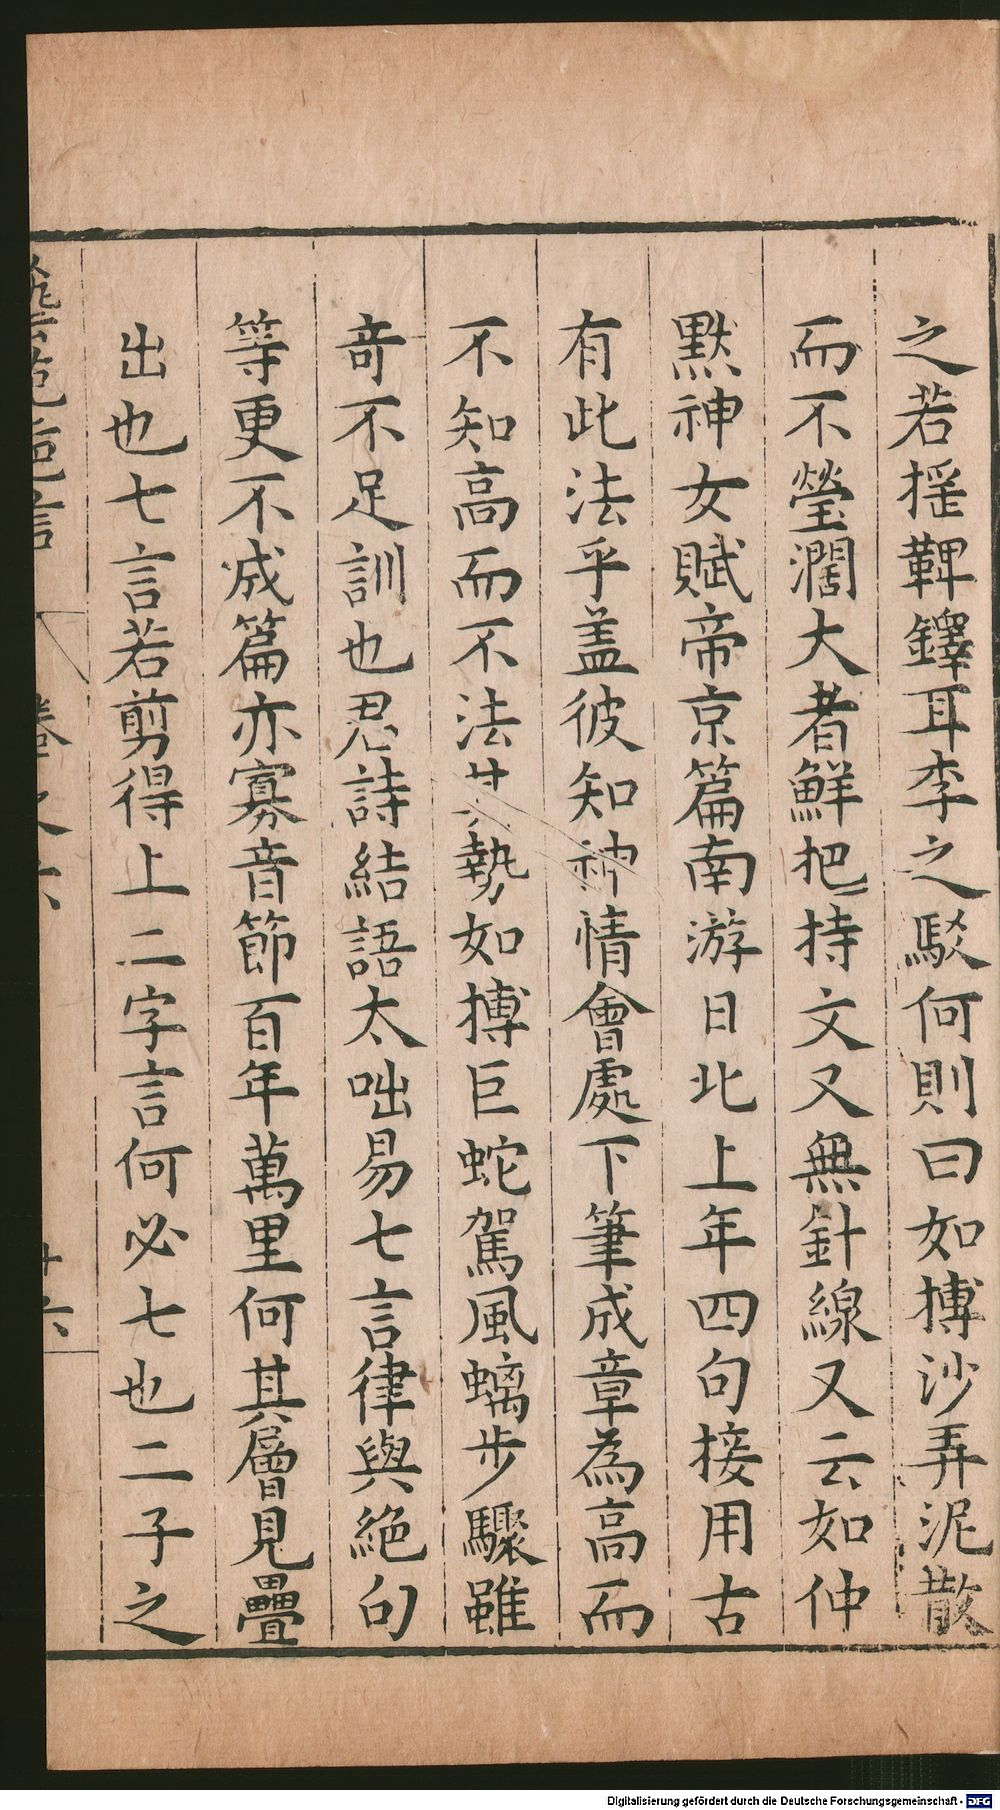 之若揺鞞鐸耳李之駁何則曰如搏沙弄泥散
而不瑩濶大者鮮把持文又無針線又云如仲
默神女賦帝京篇南游日北上年四句接用古
有此法乎盖彼知神情會處下筆成章為高而
不知高而不法其勢如搏巨蛇駕風螭步驟雖
竒不足訓也忍詩結語太咄易七言律與絶句
等更不成篇亦寡音節百年萬里何其層見疊
出也七言若剪得上二字言何必七也二子之
卷之六
十六
Digitalisierung gefördert durch die Deutsche Forschungsgemeinschaft - DFG